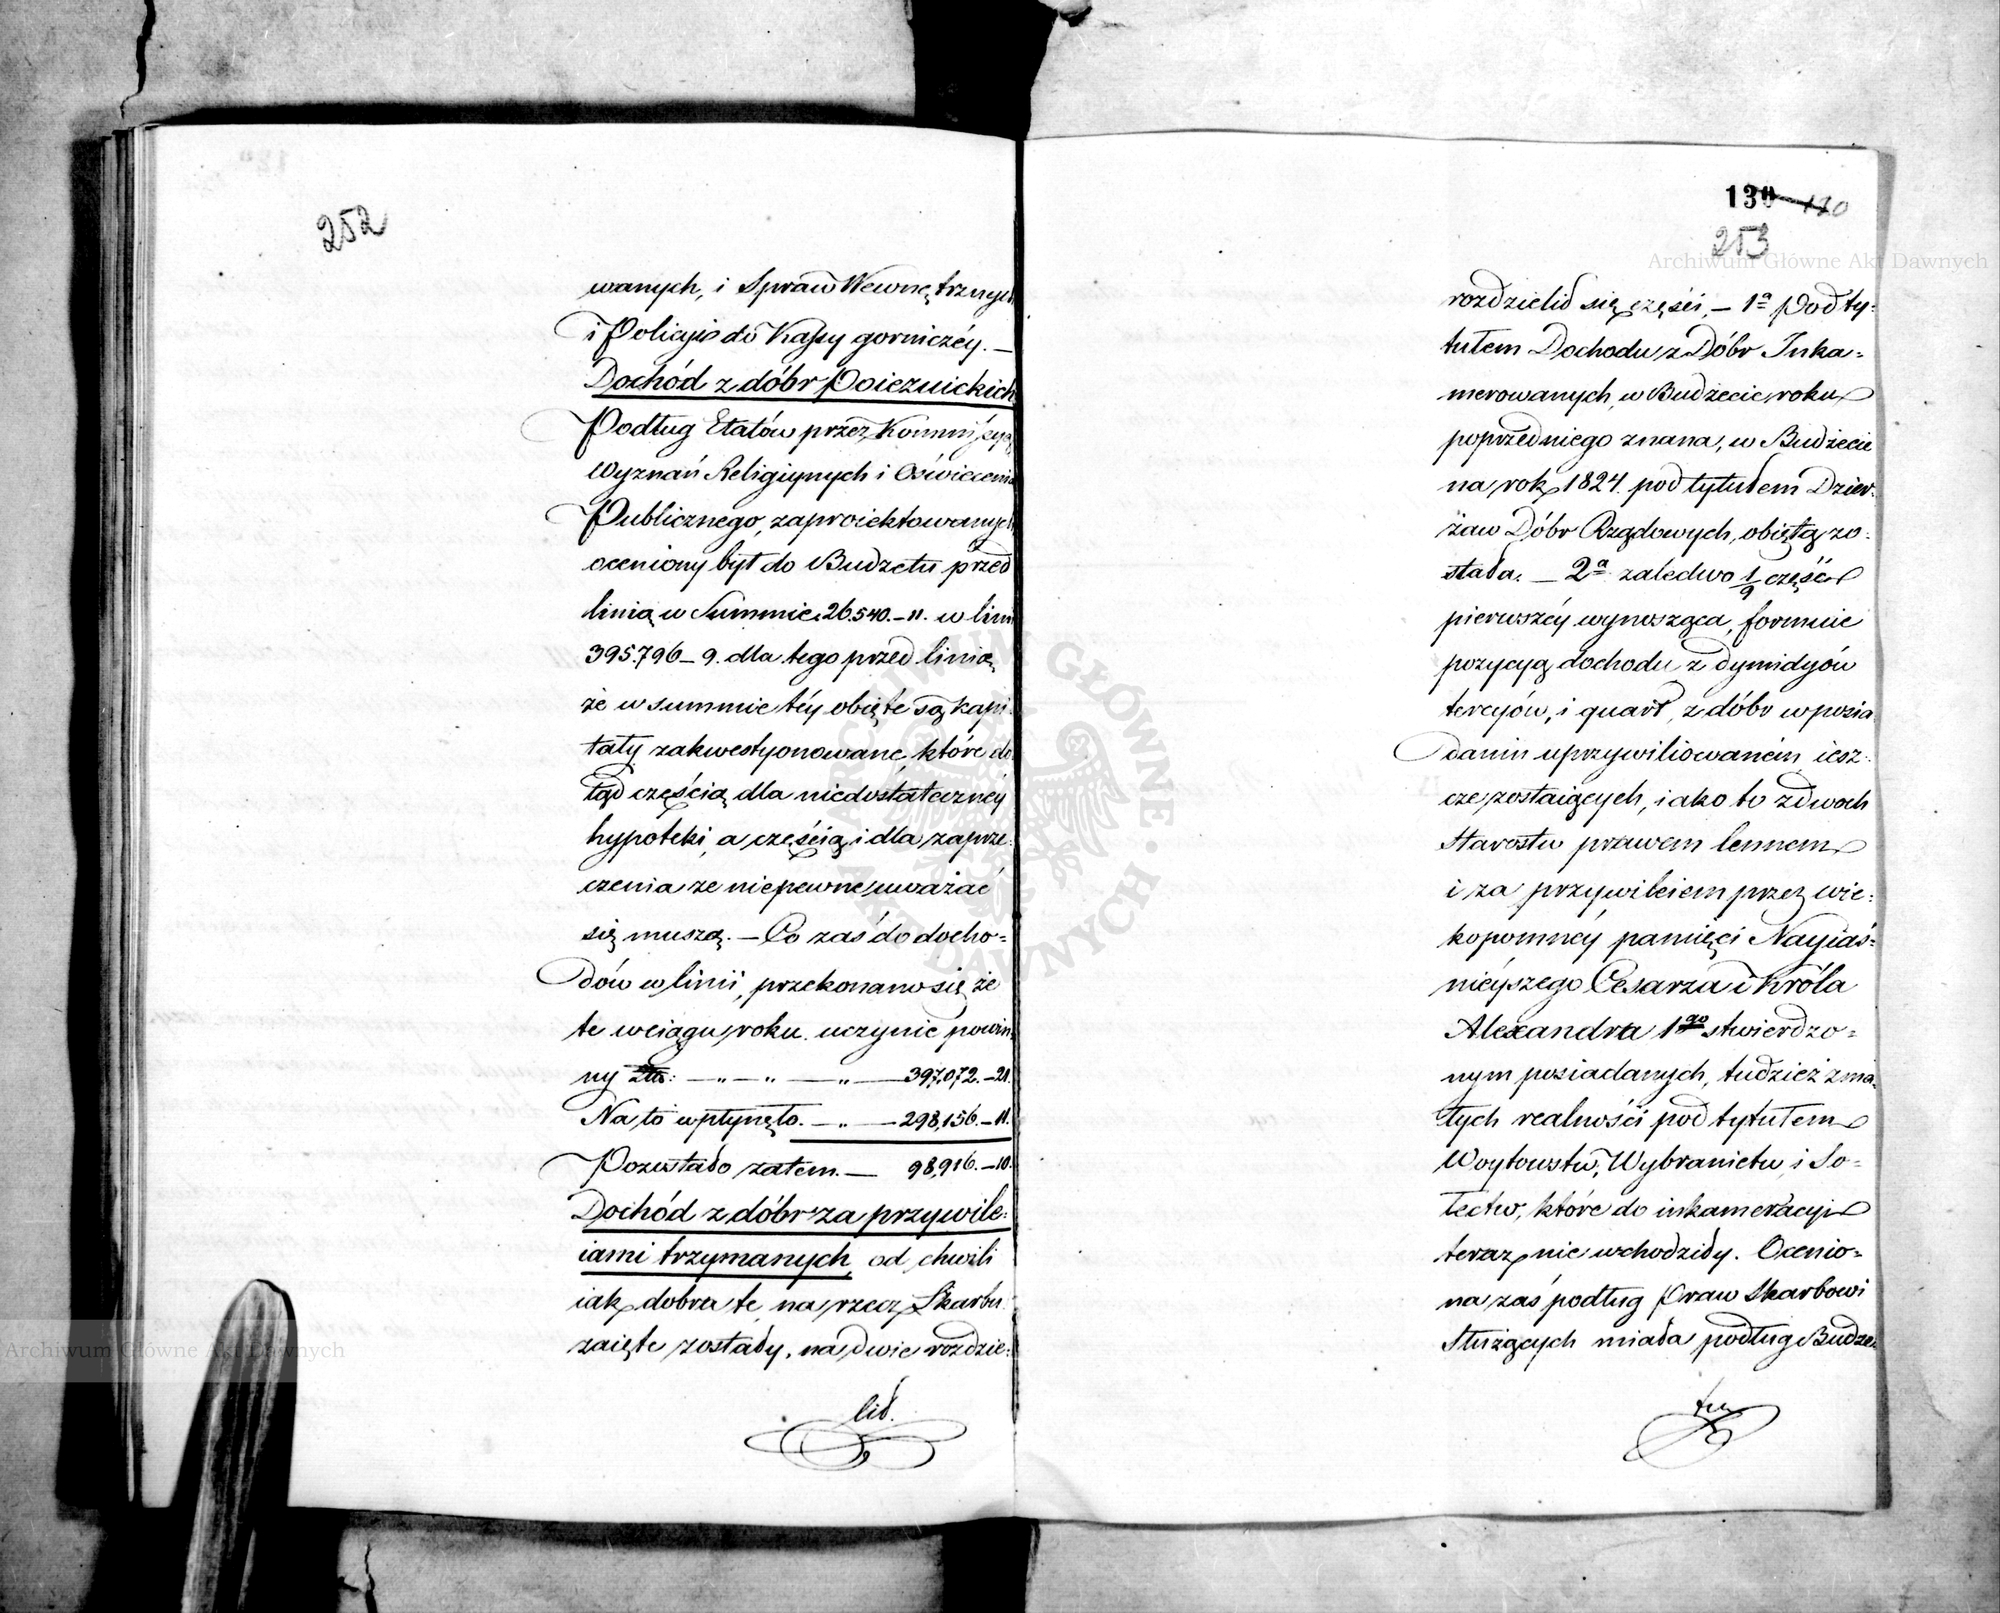 252
wanych, i Spraw Wewnętrznych
i Policyi do Kassy gorniczéy. —
Dochód z dóbr Poiezuickich
Podług Etatów przez Kommissyą
Wyznań Religiynych i Oświecenia
Publicznego, zaproiektowanych
oceniony był do Budżetu przed
linią w Summie 26.540.–11. w linii
395.796–9. dla tego przed linią,
że w summie téy obięte są kapi-
tały zakwestyonowane, które do
tąd częścią dla niedostateczney
hypoteki, a częścią i dla zaprze-
czenia za niepewne uważać
się muszą. — Co zaś do docho=
dów w linii, przekonano się że
te w ciągu roku uczynić powin-
ny Złt: — „ — „ — „ — 397,072.–21.
Na to wpłynęło. — „ — 298,156.–11.
Pozostało zatem. — 98,916.–10.
Dochód z dóbr za przywile:
iami trzymanych, od chwili
iak dobra te, na rzecz Skarbu
zaięte zostały, na dwie rozdzie:
lił.
130 130
253
rozdzielił się części, — 1ª Pod ty:
tułem Dochodu z Dóbr Inka=
merowanych, w Budżecie roku
poprzedniego znana, w Budżecie
na rok 1824. pod tytułem Dzier-
żaw Dóbr Rządowych, obiętą zo:
stała. — 2ª zaledwo 1/9 część
pierwszéy wynosząca, formuie
pozycyą dochodu z dymidyów
tercyów, i quart, z dóbr w posia
daniu uprzywiliowaném iesz:
cze zostaiących, iako to z dwoch
Starostw prawem lennem
i za przywileiem przez wie:
kopomnéy pamięci Nayiaś=
nieyszego Cesarza i Króla
Alexandra 1go stwierdzo=
nym posiadanych, tudzież z ma-
łych realności pod tytułem
Woytowstw, Wybranictw, i So=
łectw, które do inkameracyi
teraz nie wchodziły. Ocenio=
na zaś podług Praw Skarbowi
służących miała podług Budże-
tu
Archiwum Główne Akt Dawnych
Archiwum Główne Akt Dawnych
ARCHIWUM GŁÓWNE AKT DAWNYCH